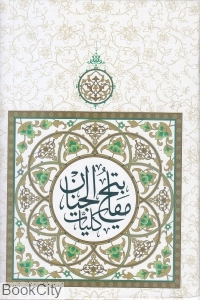 کلیات
مفاتیح الجنان
BookCity